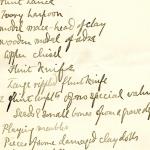 Flint Lance
Ivory harpoon
model mace-head of clay
wooden model of adze
Copper chisel
Flint Knife
Large rippled flint knife
2 flint of no special value
Seeds & small bones from grave
Playing marbles
Pieces of some damaged clay dolls